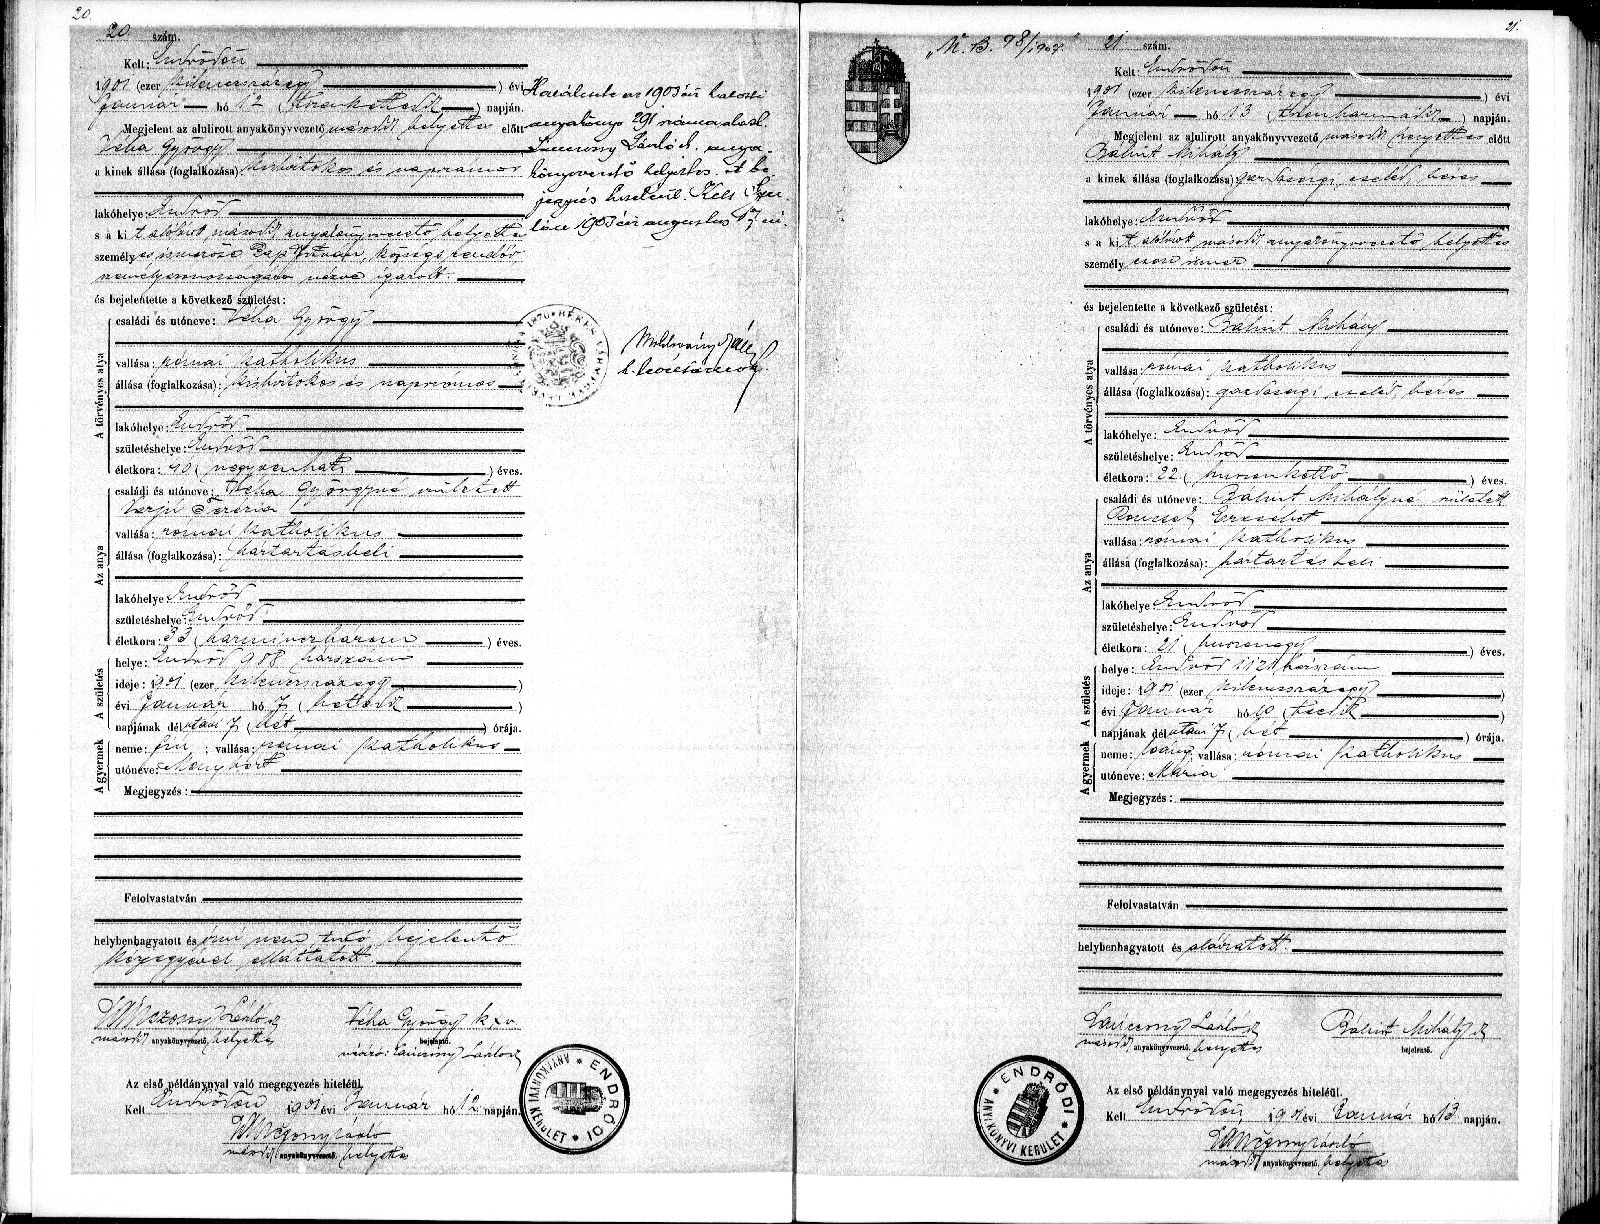 20.
20 szám.
Kelt: Endrődön
1901 (ezer kilencszázegy) évi
Január hó 12 (tizenkettedik) napján.
Megjelent az alulirott anyakönyvvezető másodk helyettes előtt
Véha György
a kinek állása (foglalkozása) kisbirtokos és napszámos
lakóhelye: Endrőd
s a kit alólirott másodk anyakönyvvezető helyettes
személyes ismerőse Pap István, községi rendőr,
személyazonosságára nézve igazolt.
és bejelentette a következő születést:
A törvényes atya
családi és utóneve: Véha György
vallása: római katholikus
állása (foglalkozása): kisbirtokos és napszámos
lakóhelye: Endrőd
születéshelye: Endrőd
életkora: 40 ( ) éves.
Az anya
családi és utóneve: Véha Györgyné született
Terézia
vallása: római katholikus
állása (foglalkozása): háztartásbeli
lakóhelye: Endrőd
születéshelye: Endrőd
életkora: 33 (harminczhárom) éves.
A születés
helye: Endrőd 988 házszám
ideje: 1901 (ezer kilencszázegy)
évi Január hó 7 (hetedik)
napjának délutáni 7 (hét) órája.
A gyermek
neme: fiu; vallása: római katholikus
utóneve: Menyhért
Megjegyzés:
Felolvastatván
helybenhagyatott és írni nem tudó bejelentő
kézjegyével elláttatott.
László
másodk anyakönyvvezető, helyettes
Véha György k x v.
bejelentő.
László
Az első példánynyal való megegyezés hiteléül.
Kelt Endrődön 1901 évi Január hó 12 napján.
László
másodk anyakönyvvezető, helyettes
ENDRŐDI ANYAKÖNYVI KERÜLET
az 1903 évi halotti
anyakönyv 291 száma alatt.
László h. anya-
könyvvezető helyettes. Ezt be-
jegyzés hiteléül. Kelt Gyu-
lán 1903 évi augusztus 17 én.
BÉKÉS VÁRMEGYE
1870
21.
"N. B. 98/1904."
21 szám.
Kelt: Endrődön
1901 (ezer kilencszázegy) évi
Január hó 13 (tizenharmadik) napján.
Megjelent az alulirott anyakönyvvezető másodk helyettes előtt
Bálint Mihály
a kinek állása (foglalkozása) gazdasági cseléd, béres
lakóhelye: Endrőd
s a kit alólirott másodk anyakönyvvezető helyettes
személyesen ismer
és bejelentette a következő születést:
A törvényes atya
családi és utóneve: Bálint Mihály
vallása: római katholikus
állása (foglalkozása): gazdasági cseléd, béres
lakóhelye: Endrőd
születéshelye: Endrőd
életkora: 22 (huszonkettő) éves.
Az anya
családi és utóneve: Bálint Mihályné született
Erzsébet
vallása: római katholikus
állása (foglalkozása): háztartásbeli
lakóhelye: Endrőd
születéshelye: Endrőd
életkora: 21 (huszonegy) éves.
A születés
helye: Endrőd 1121 házszám
ideje: 1901 (ezer kilencszázegy)
évi Január hó 10 (tizedik)
napjának délutáni 7 (hét) órája.
A gyermek
neme: leány; vallása: római katholikus
utóneve: Mária
Megjegyzés:
Felolvastatván
helybenhagyatott és aláiratott.
László
másodk anyakönyvvezető, helyettes
Bálint Mihály
bejelentő.
Az első példánynyal való megegyezés hiteléül.
Kelt Endrődön 1901 évi Január hó 13 napján.
László
másodk anyakönyvvezető, helyettes
ENDRŐDI ANYAKÖNYVI KERÜLET